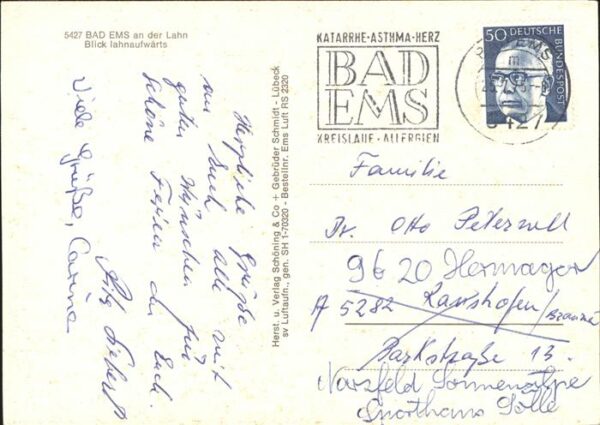 5427 BAD EMS an der Lahn
Blick lahnaufwärts
Herzliche Grüße
an Euch alle mit
guten Wünschen für
schöne Ferien
Euch.
Viele Grüße, Carina
Herst. u. Verlag Schöning & Co + Gebrüder Schmidt - Lübeck
sv Luftaufn., gen. SH 1-70320 - Bestellnr. Ems Luft RS 2320
KATARRHE-ASTHMA-HERZ
BAD
EMS
KREISLAUF-ALLERGIEN
50 DEUTSCHE
BUNDESPOST
EMS
m
5427
Familie
Dr. Otto Peterzell
9620 Hermagor
A 5282 Ranshofen/
Braunau
Parkstraße 13.
Nassfeld Sonnenalpe
Sporthaus Sölle